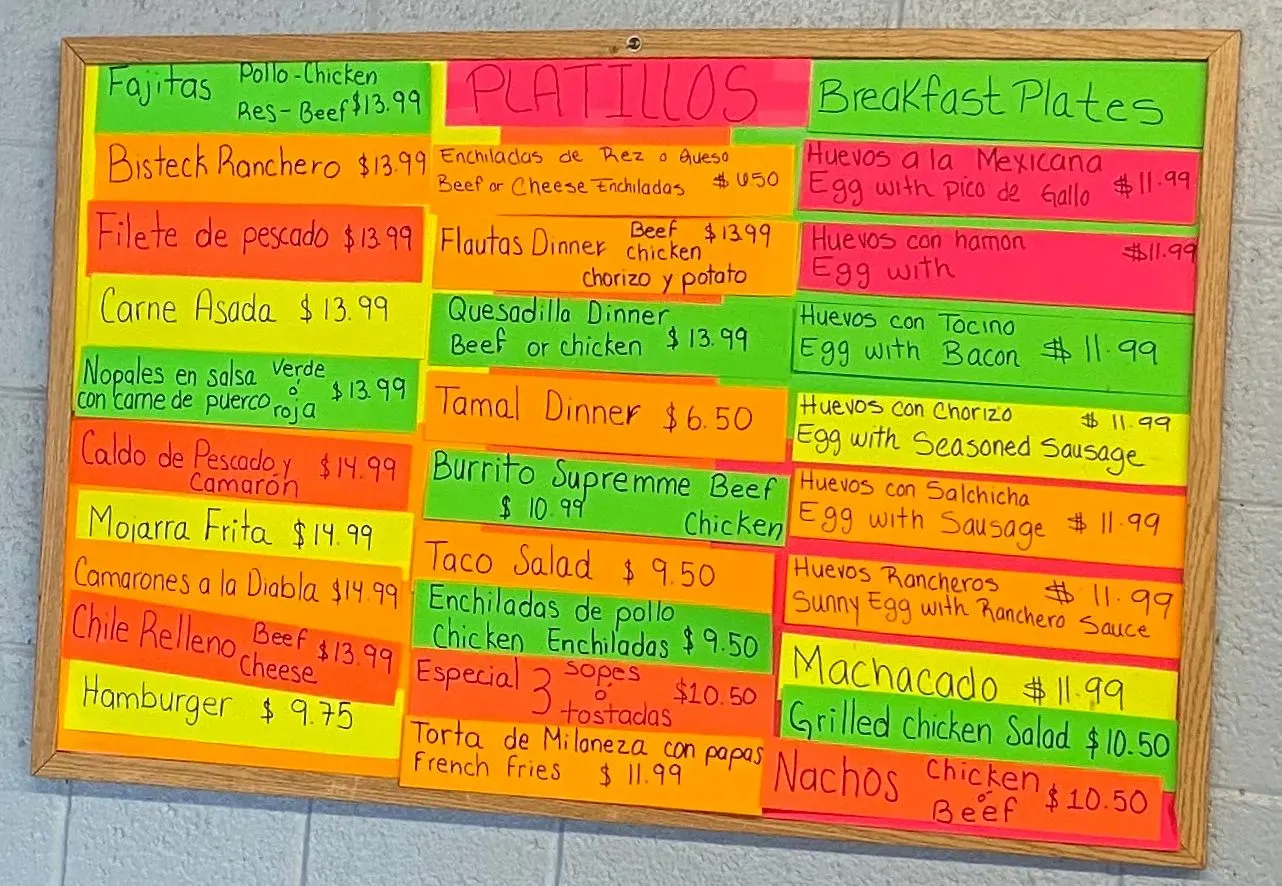 Fajitas Pollo-Chicken
Res-Beef $13.99
Bisteck Ranchero $13.99
Filete de pescado $13.99
Carne Asada $13.99
Nopales en salsa verde
ó $13.99
con carne de puerco roja
Caldo de Pescado y $14.99
Camarón
Mojarra Frita $14.99
Camarones a la Diabla $14.99
Chile Relleno Beef $13.99
Cheese
Hamburger $9.75
PLATILLOS
Enchiladas de Rez o Queso
Beef or Cheese Enchiladas
Flautas Dinner Beef $13.99
chicken
chorizo y potato
Quesadilla Dinner
Beef or chicken $13.99
Tamal Dinner $6.50
Burrito Supremme Beef
$10.99 Chicken
Taco Salad $9.50
Enchiladas de pollo
Chicken Enchiladas $9.50
Especial 3 sopes
ó $10.50
tostadas
Torta de Milaneza con papas
French Fries $11.99
Breakfast Plates
Huevos a la Mexicana
Egg with pico de Gallo $11.99
Huevos con hamon $11.99
Egg with
Huevos con Tocino
Egg with Bacon $11.99
Huevos con Chorizo $11.99
Egg with Seasoned Sausage
Huevos con Salchicha
Egg with Sausage $11.99
Huevos Rancheros $11.99
Sunny Egg with Ranchero Sauce
Machacado $11.99
Grilled chicken Salad $10.50
Nachos chicken
ó $10.50
Beef